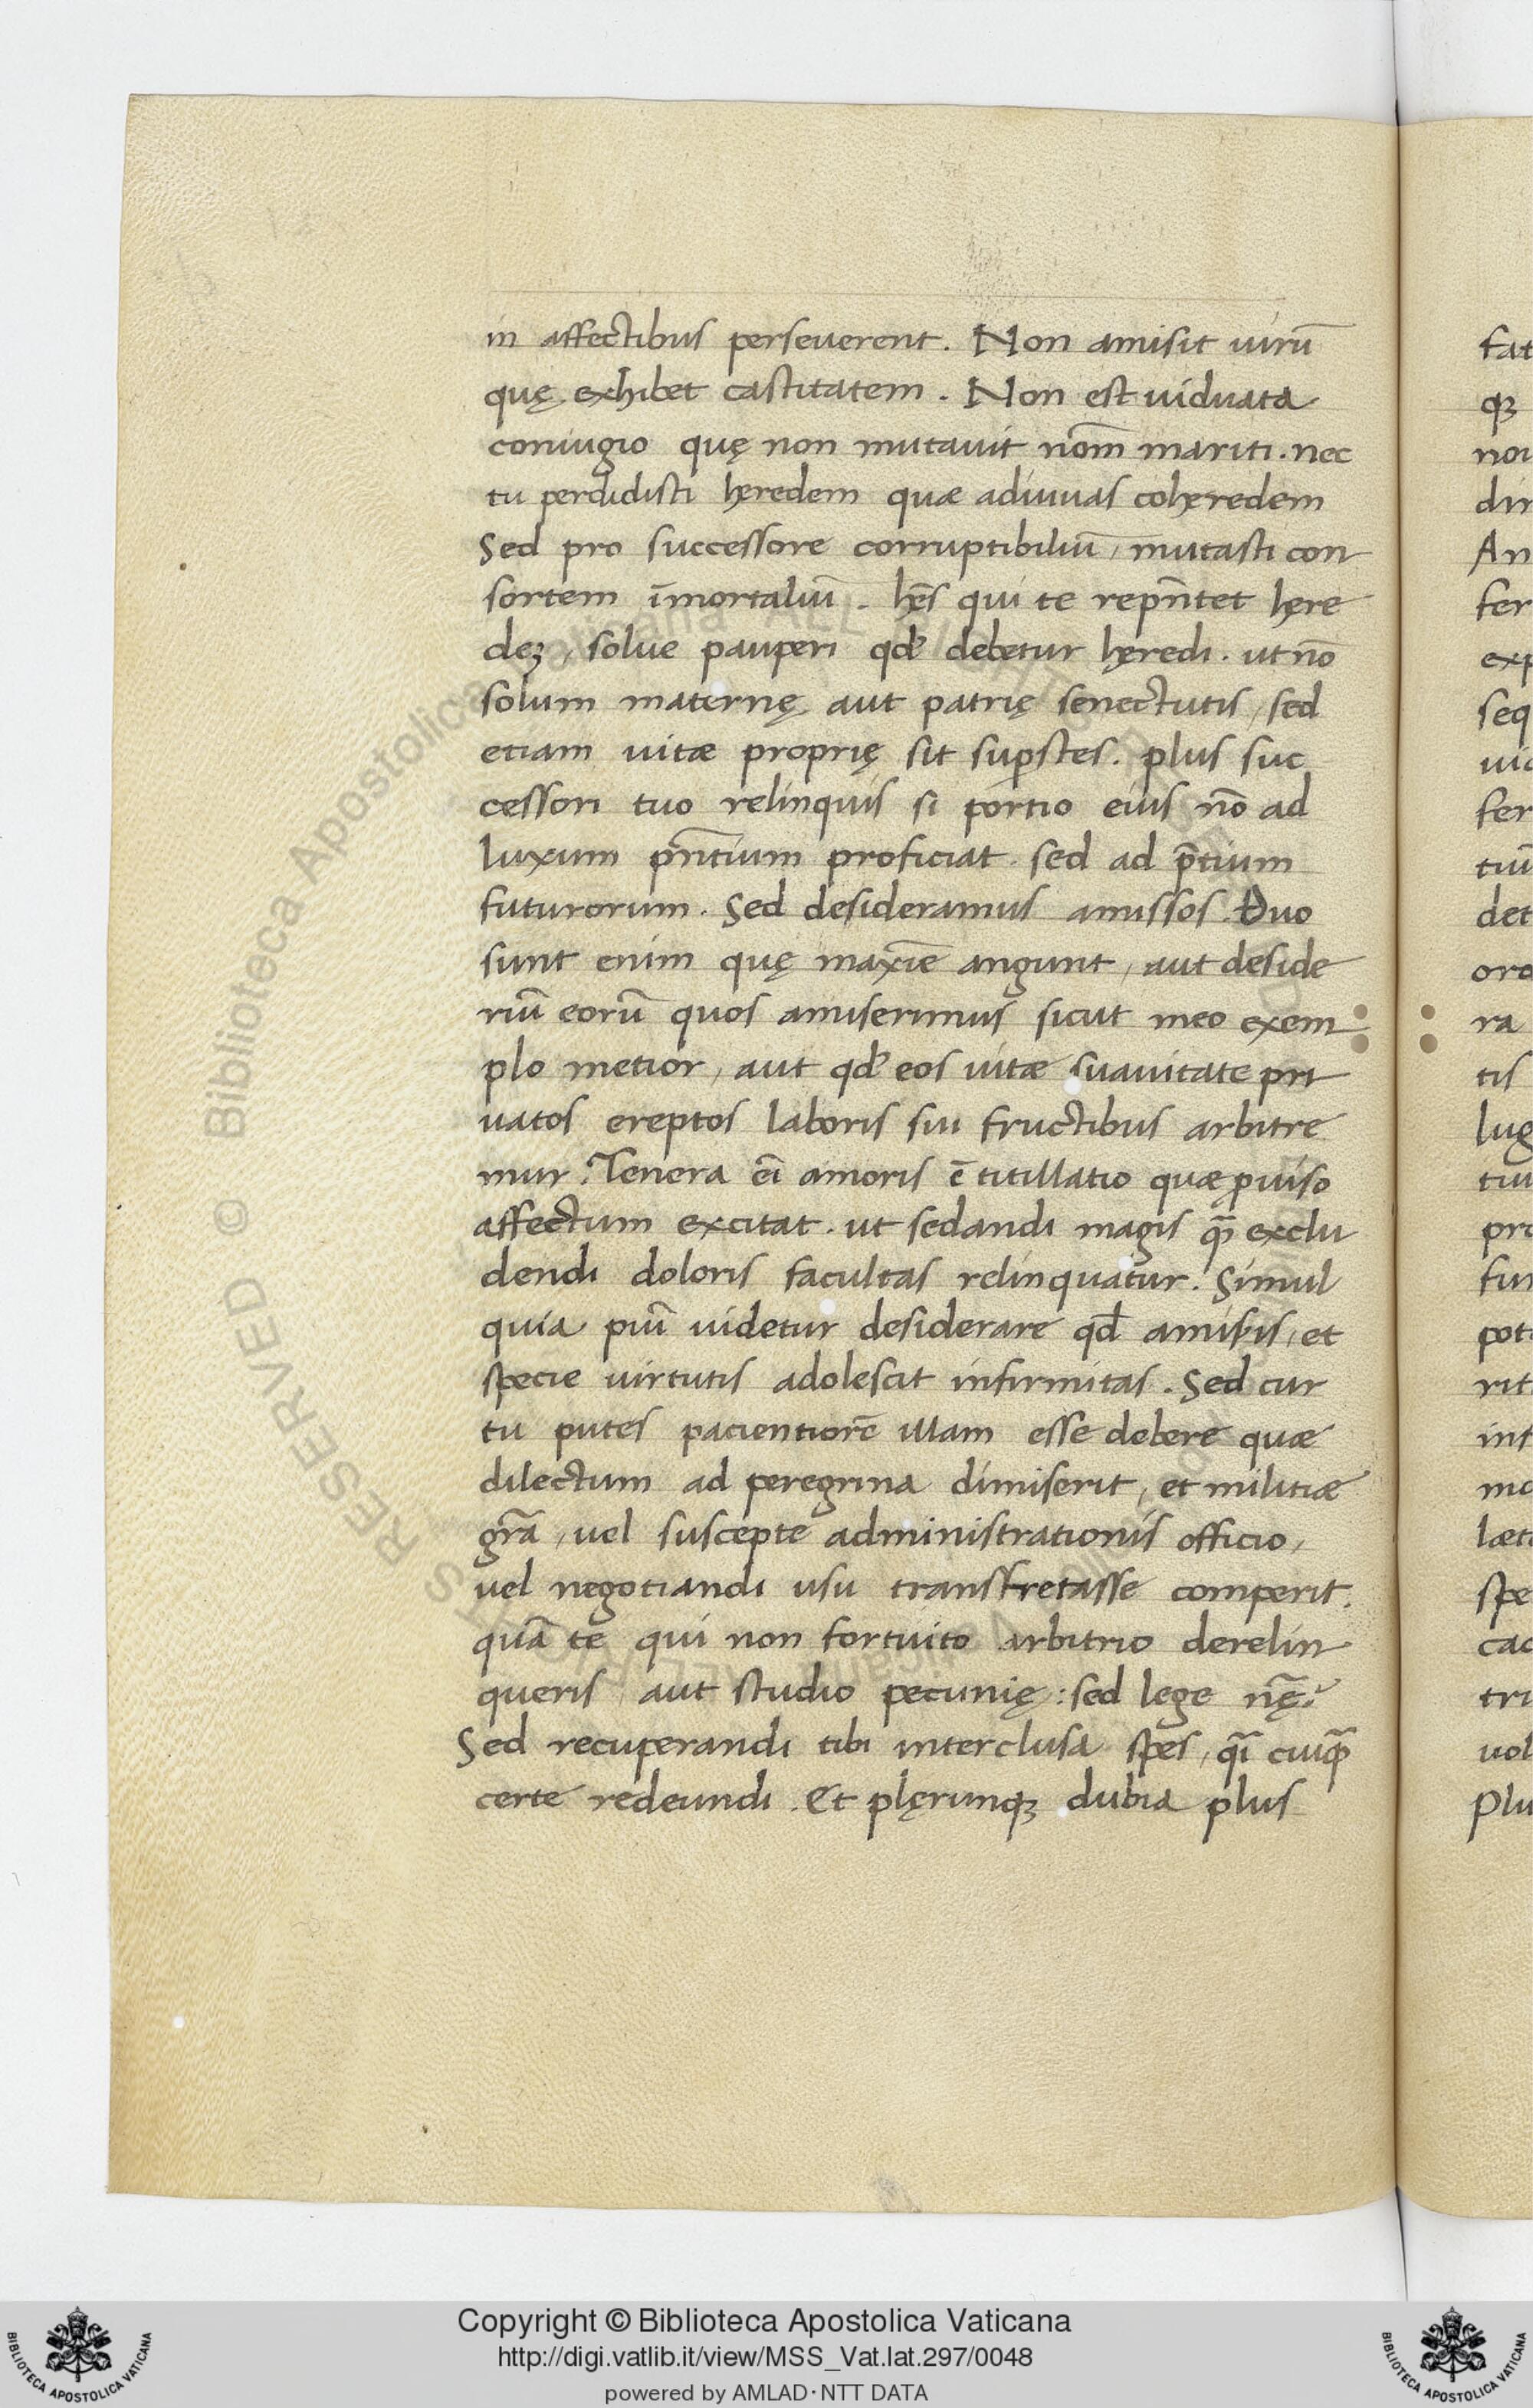 in affectibus perseuerent. Non amisit uirū
quę exhibet castitatem. Non est uiduata
coniugio quę non mutauit nom̄ mariti. nec
tu perdidisti hęredem quæ adiuuas cohęredem
Sed pro successore corruptibiliū, mutasti con
sortem īmortaliū. hęs̄ qui te repn̄tet hęre
deꝫ, solue pauperi qd' debetur hęredi. ut nō
solum maternę aut patrię senectutis, sed
etiam uitæ proprię sit suꝑstes. plus suc
cessori tuo relinquis si portio eius nō ad
luxum pn̄tium proficiat. sed ad p̄tium
futurorum. Sed desideramus amissos. Duo
sunt enim quę maxīe angunt, aut deside
riū eorū quos amiserimus sicut meo exem
plo metior, aut qd' eos uitæ suauitate pri
uatos ereptos laboris sui fructibus arbitre
mur. Tenera eī amoris ē titillatio quæ ꝓuiso
affectum excitat. ut sedandi magis qm̄ exclu
dendi doloris facultas relinquatur. Simul
quia piū uidetur desiderare qd̄ amisis, et
specie uirtutis adolescit infirmitas. Sed cur
tu putes pacientiorē illam esse debere quæ
dilectum ad peregrina dimiserit, et militiæ
gr̄a, uel suscepte administrationis officio,
uel negotiandi usu transfretasse comperit.
quā te qui non fortuito arbitrio derelin
queris aut studio pecunię: sed lege nę̄.
Sed recuperandi tibi interclusa spes, qī cuiqꝫ
certe redeundi. Et plęrunqꝫ dubia plus
fat
qꝫ
nou
din
An
fer
exp
seq
uid
fer
tiū
det
oro
ra
tis
lug
tiu
pro
fun
pot
rit
inf
mo
læt
spe
cad
tri
uol
Plu
© Biblioteca Apostolica Vaticana ALL RIGHTS RESERVED
Copyright © Biblioteca Apostolica Vaticana
http://digi.vatlib.it/view/MSS_Vat.lat.297/0048
powered by AMLAD·NTT DATA
BIBLIOTECA APOSTOLICA VATICANA
BIBLIOTECA APOSTOLICA VATICANA